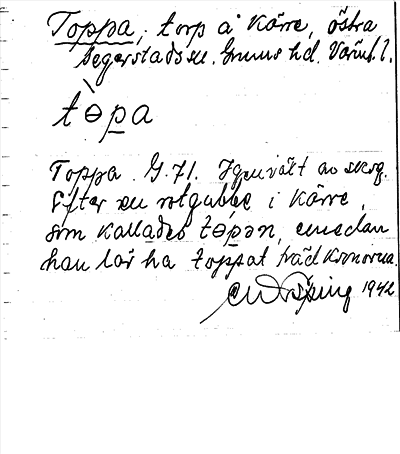 Toppa, torp å Kärre, östra
Segerstads sn. Grums hd. Värml.
tɵpa
Toppa G. 71. Igenväxt av skog.
Efter en rotgubbe i Kärre,
som kallades tɵpən, emedan
han lär ha toppat trädkronorna.
1942